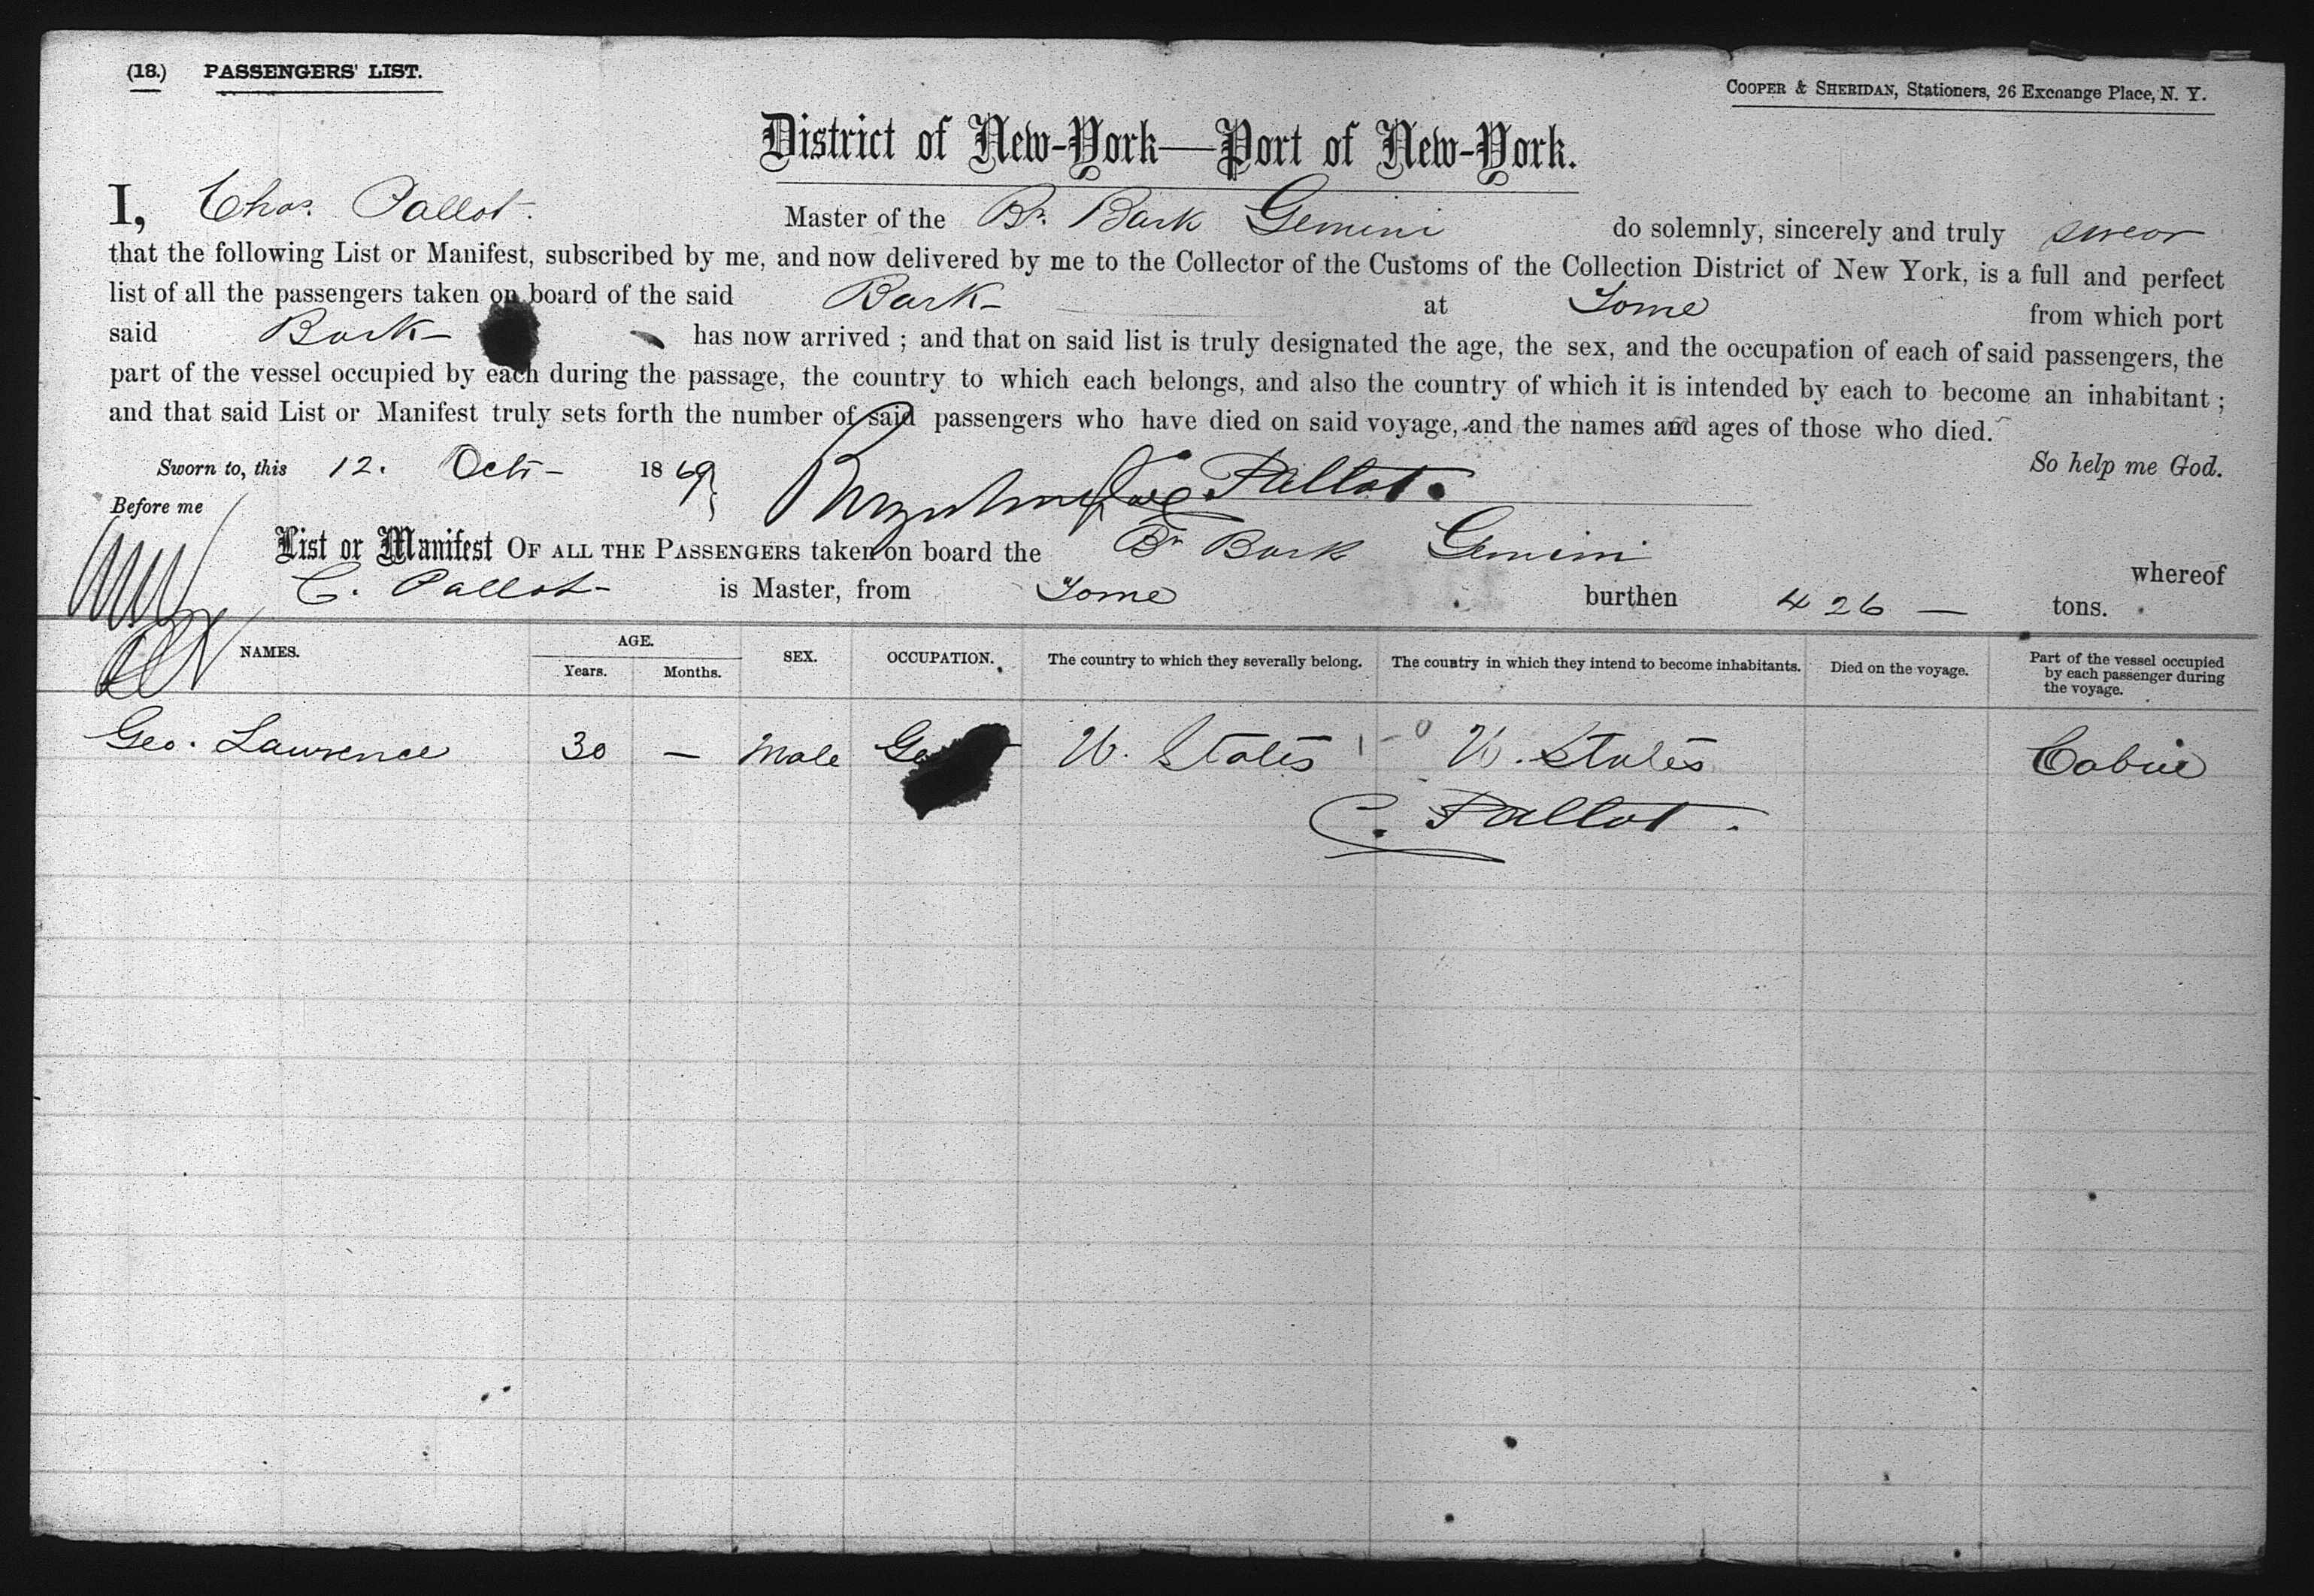 (18.) PASSENGERS' LIST.
COOPER & SHERIDAN, Stationers, 26 Exchange Place, N. Y.
District of New-York—Port of New-York.
I, Chas. Pallot. Master of the Br. Bark Gemini do solemnly, sincerely and truly swear
that the following List or Manifest, subscribed by me, and now delivered by me to the Collector of the Customs of the Collection District of New York, is a full and perfect
list of all the passengers taken on board of the said Bark at Tome from which port
said Bark has now arrived ; and that on said list is truly designated the age, the sex, and the occupation of each of said passengers, the
part of the vessel occupied by each during the passage, the country to which each belongs, and also the country of which it is intended by each to become an inhabitant ;
and that said List or Manifest truly sets forth the number of said passengers who have died on said voyage, and the names and ages of those who died.
So help me God.
Sworn to, this 12. Oct- 1869 Pallot.
Before me
List or Manifest OF ALL THE PASSENGERS taken on board the Br Bark Gemini whereof
C. Pallot- is Master, from Tome burthen 426 — tons.
NAMES. AGE. Years. Months. SEX. OCCUPATION. The country to which they severally belong. The country in which they intend to become inhabitants. Died on the voyage. Part of the vessel occupied by each passenger during the voyage.
Geo. Lawrence 30 — Male U. States U. States Cabin
C. Pallot.